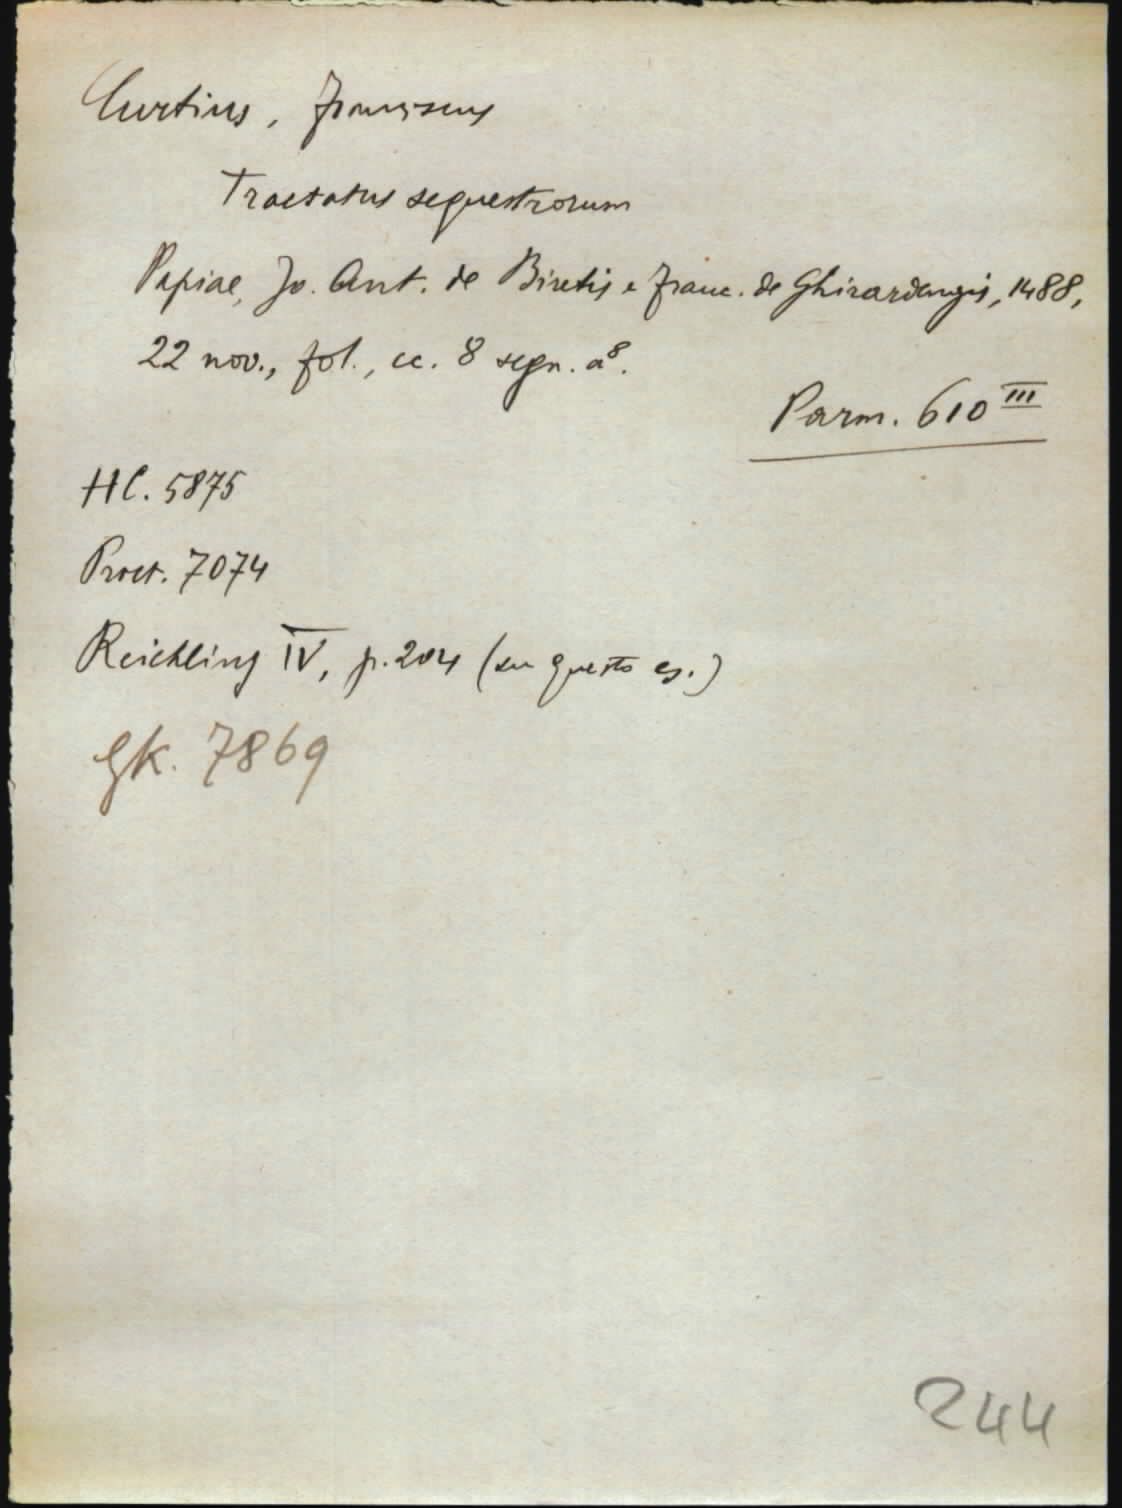 Curtius, Franciscus
Tractatus sequestrorum
Papiae, Jo. Ant. de Biretis e Franc. de Ghirardengis, 1488,
22 nov., fol., cc. 8 segn. a⁸.
Parm. 610 III
HC. 5875
Proct. 7074
Reichling IV, p. 204 (su questo es.)
GK. 7869
244